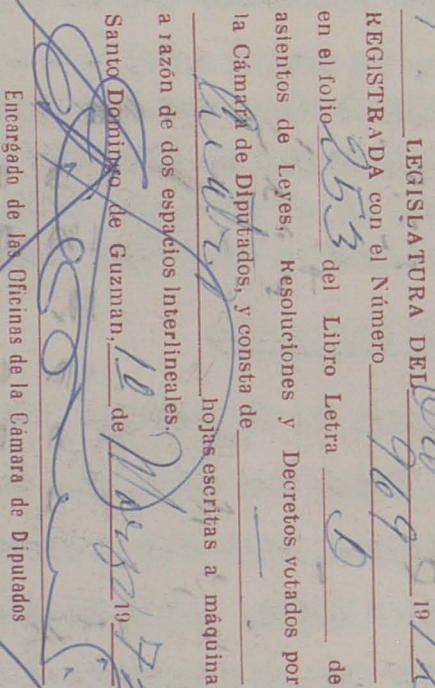 LEGISLATURA DEL 19
REGISTRADA con el Número 969
en el folio 253 del Libro Letra D de
asientos de Leyes, Resoluciones y Decretos votados por
la Cámara de Diputados, y consta de
hojas escritas a máquina
a razón de dos espacios Interlineales.
Santo Domingo de Guzman, de 19
Encargado de las Oficinas de la Cámara de Diputados